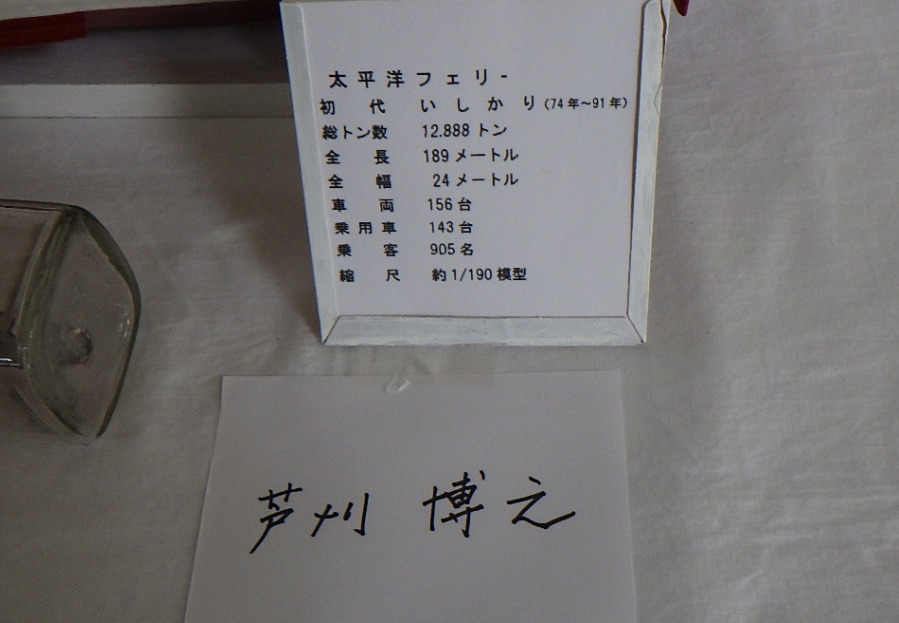 太平洋フェリー
初代 いしかり (74年～91年)
総トン数 12.888トン
全長 189メートル
全幅 24メートル
車両 156台
乗用車 143台
乗客 905名
縮尺 約1/190模型
芦刈 博之